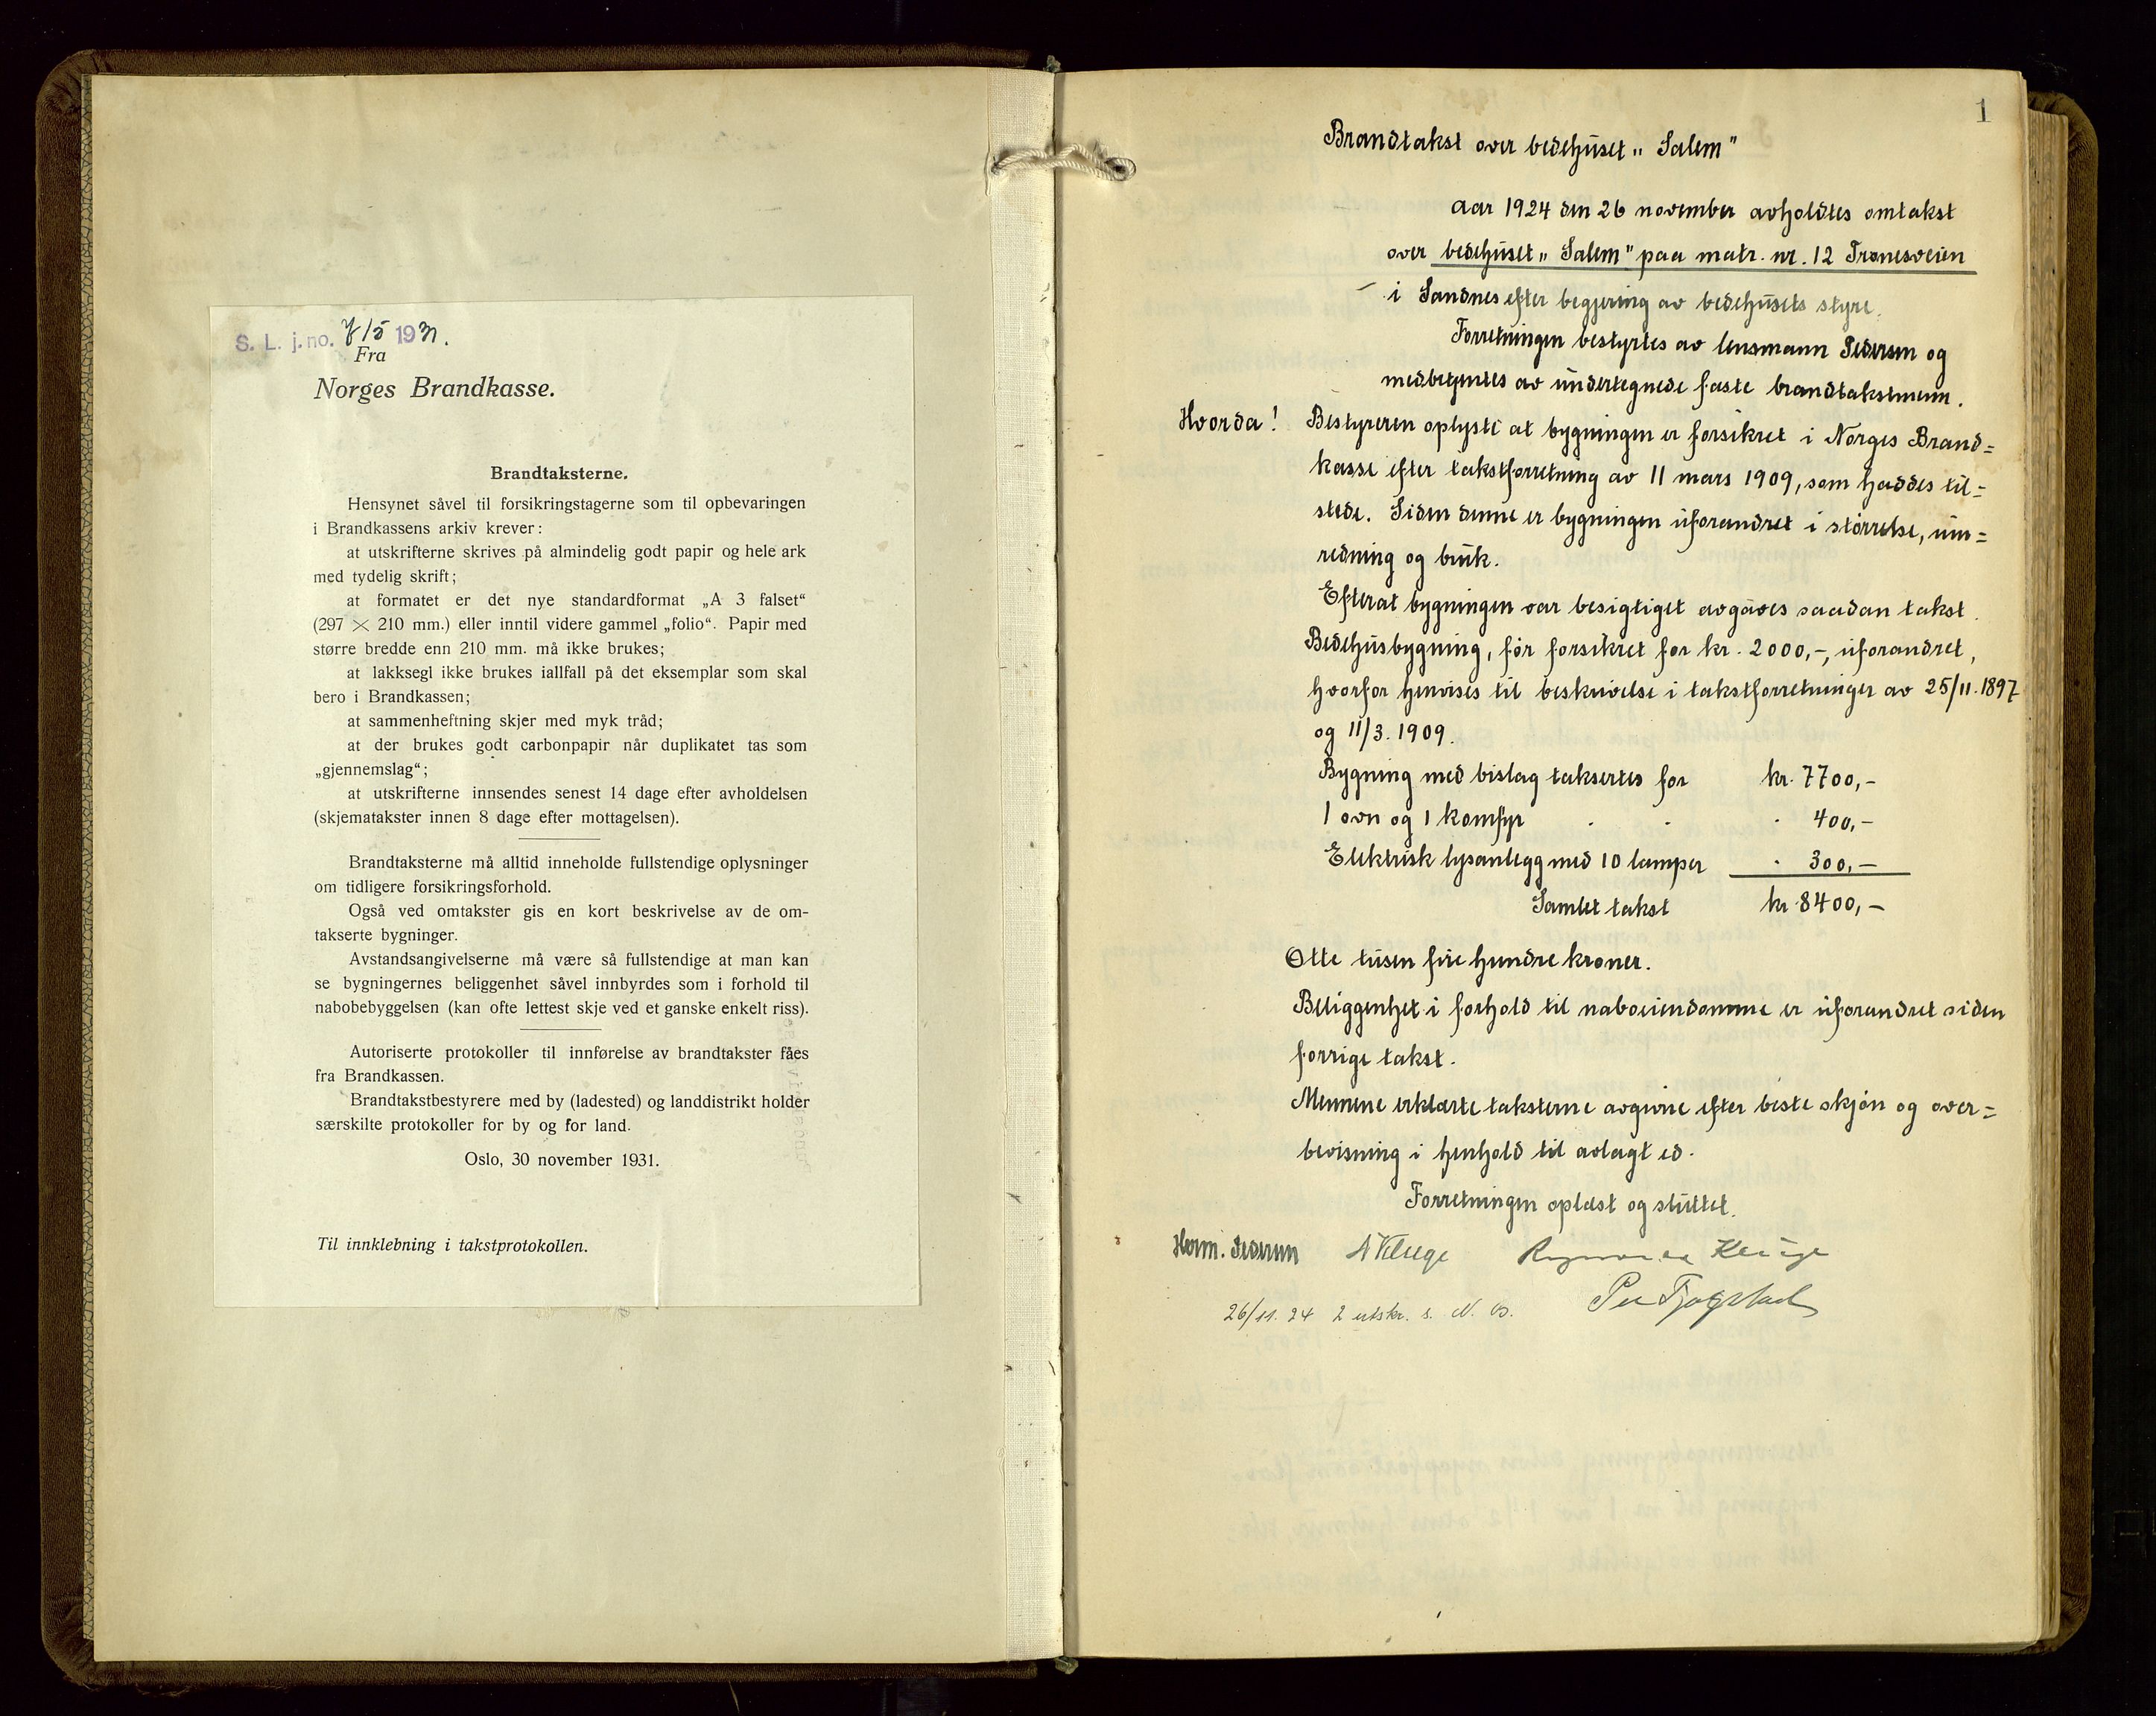 S. L. j. no. 715 1931.
Fra
Norges Brandkasse.
Brandtaksterne.
Hensynet såvel til forsikringstagerne som til opbevaringen
i Brandkassens arkiv krever:
at utskrifterne skrives på almindelig godt papir og hele ark
med tydelig skrift;
at formatet er det nye standardformat „A 3 falset“
(297 × 210 mm.) eller inntil videre gammel „folio“. Papir med
større bredde enn 210 mm. må ikke brukes;
at lakksegl ikke brukes iallfall på det eksemplar som skal
bero i Brandkassen;
at sammenheftning skjer med myk tråd;
at der brukes godt carbonpapir når duplikatet tas som
„gjennemslag“;
at utskrifterne innsendes senest 14 dage efter avholdelsen
(skjematakster innen 8 dage efter mottagelsen).
Brandtaksterne må alltid inneholde fullstendige oplysninger
om tidligere forsikringsforhold.
Også ved omtakster gis en kort beskrivelse av de om-
takserte bygninger.
Avstandsangivelserne må være så fullstendige at man kan
se bygningernes beliggenhet såvel innbyrdes som i forhold til
nabobebyggelsen (kan ofte lettest skje ved et ganske enkelt riss).
Autoriserte protokoller til innførelse av brandtakster fåes
fra Brandkassen.
Brandtakstbestyrere med by (ladested) og landdistrikt holder
særskilte protokoller for by og for land.
Oslo, 30 november 1931.
Til innklebning i takstprotokollen.
1
Brandtakst over bedehuset „Salem"
Aar 1924 den 26 november avholdtes omtakst
over bedehuset „Salem" paa matr. nr. 12 Tronesveien
i Sandnes efter begjering av bedehusets styre.
Forretningen bestyrtes av lensmann Pedersen og
medbetjentes av undertegnede faste brandtakstmenn.
Hvorda! Bestyreren oplyste at bygningen er forsikret i Norges Brand=
kasse efter takstforretning av 11 mars 1909, som haddes til=
stede. Siden denne er bygningen uforandret i størrelse, inn=
redning og bruk.
Efterat bygningen var besigtiget avgaves saadan takst.
Bedehusbygning, før forsikret for kr. 2000,-, uforandret,
hvorfor henvises til beskrivelse i takstforretninger av 25/11. 1897
og 11/3. 1909.
Bygning med bislag taksertes for kr. 7700,-
1 ovn og 1 komfyr . . . 400,-
Elektrisk lysanlegg med 10 lamper . 300,-
Samlet takst kr. 8400,-
Otte tusen fire hundre kroner.
Beliggenhet i forhold til naboeiendomme er uforandret siden
forrige takst.
Mennene erklærte taksterne avgivne efter beste skjøn og over=
bevisning i henhold til avlagt ed.
Forretningen oplæst og sluttet.
Herm. Pedersen A Kluge Kluge
26/11. 24 2 utskr. s. N. B.